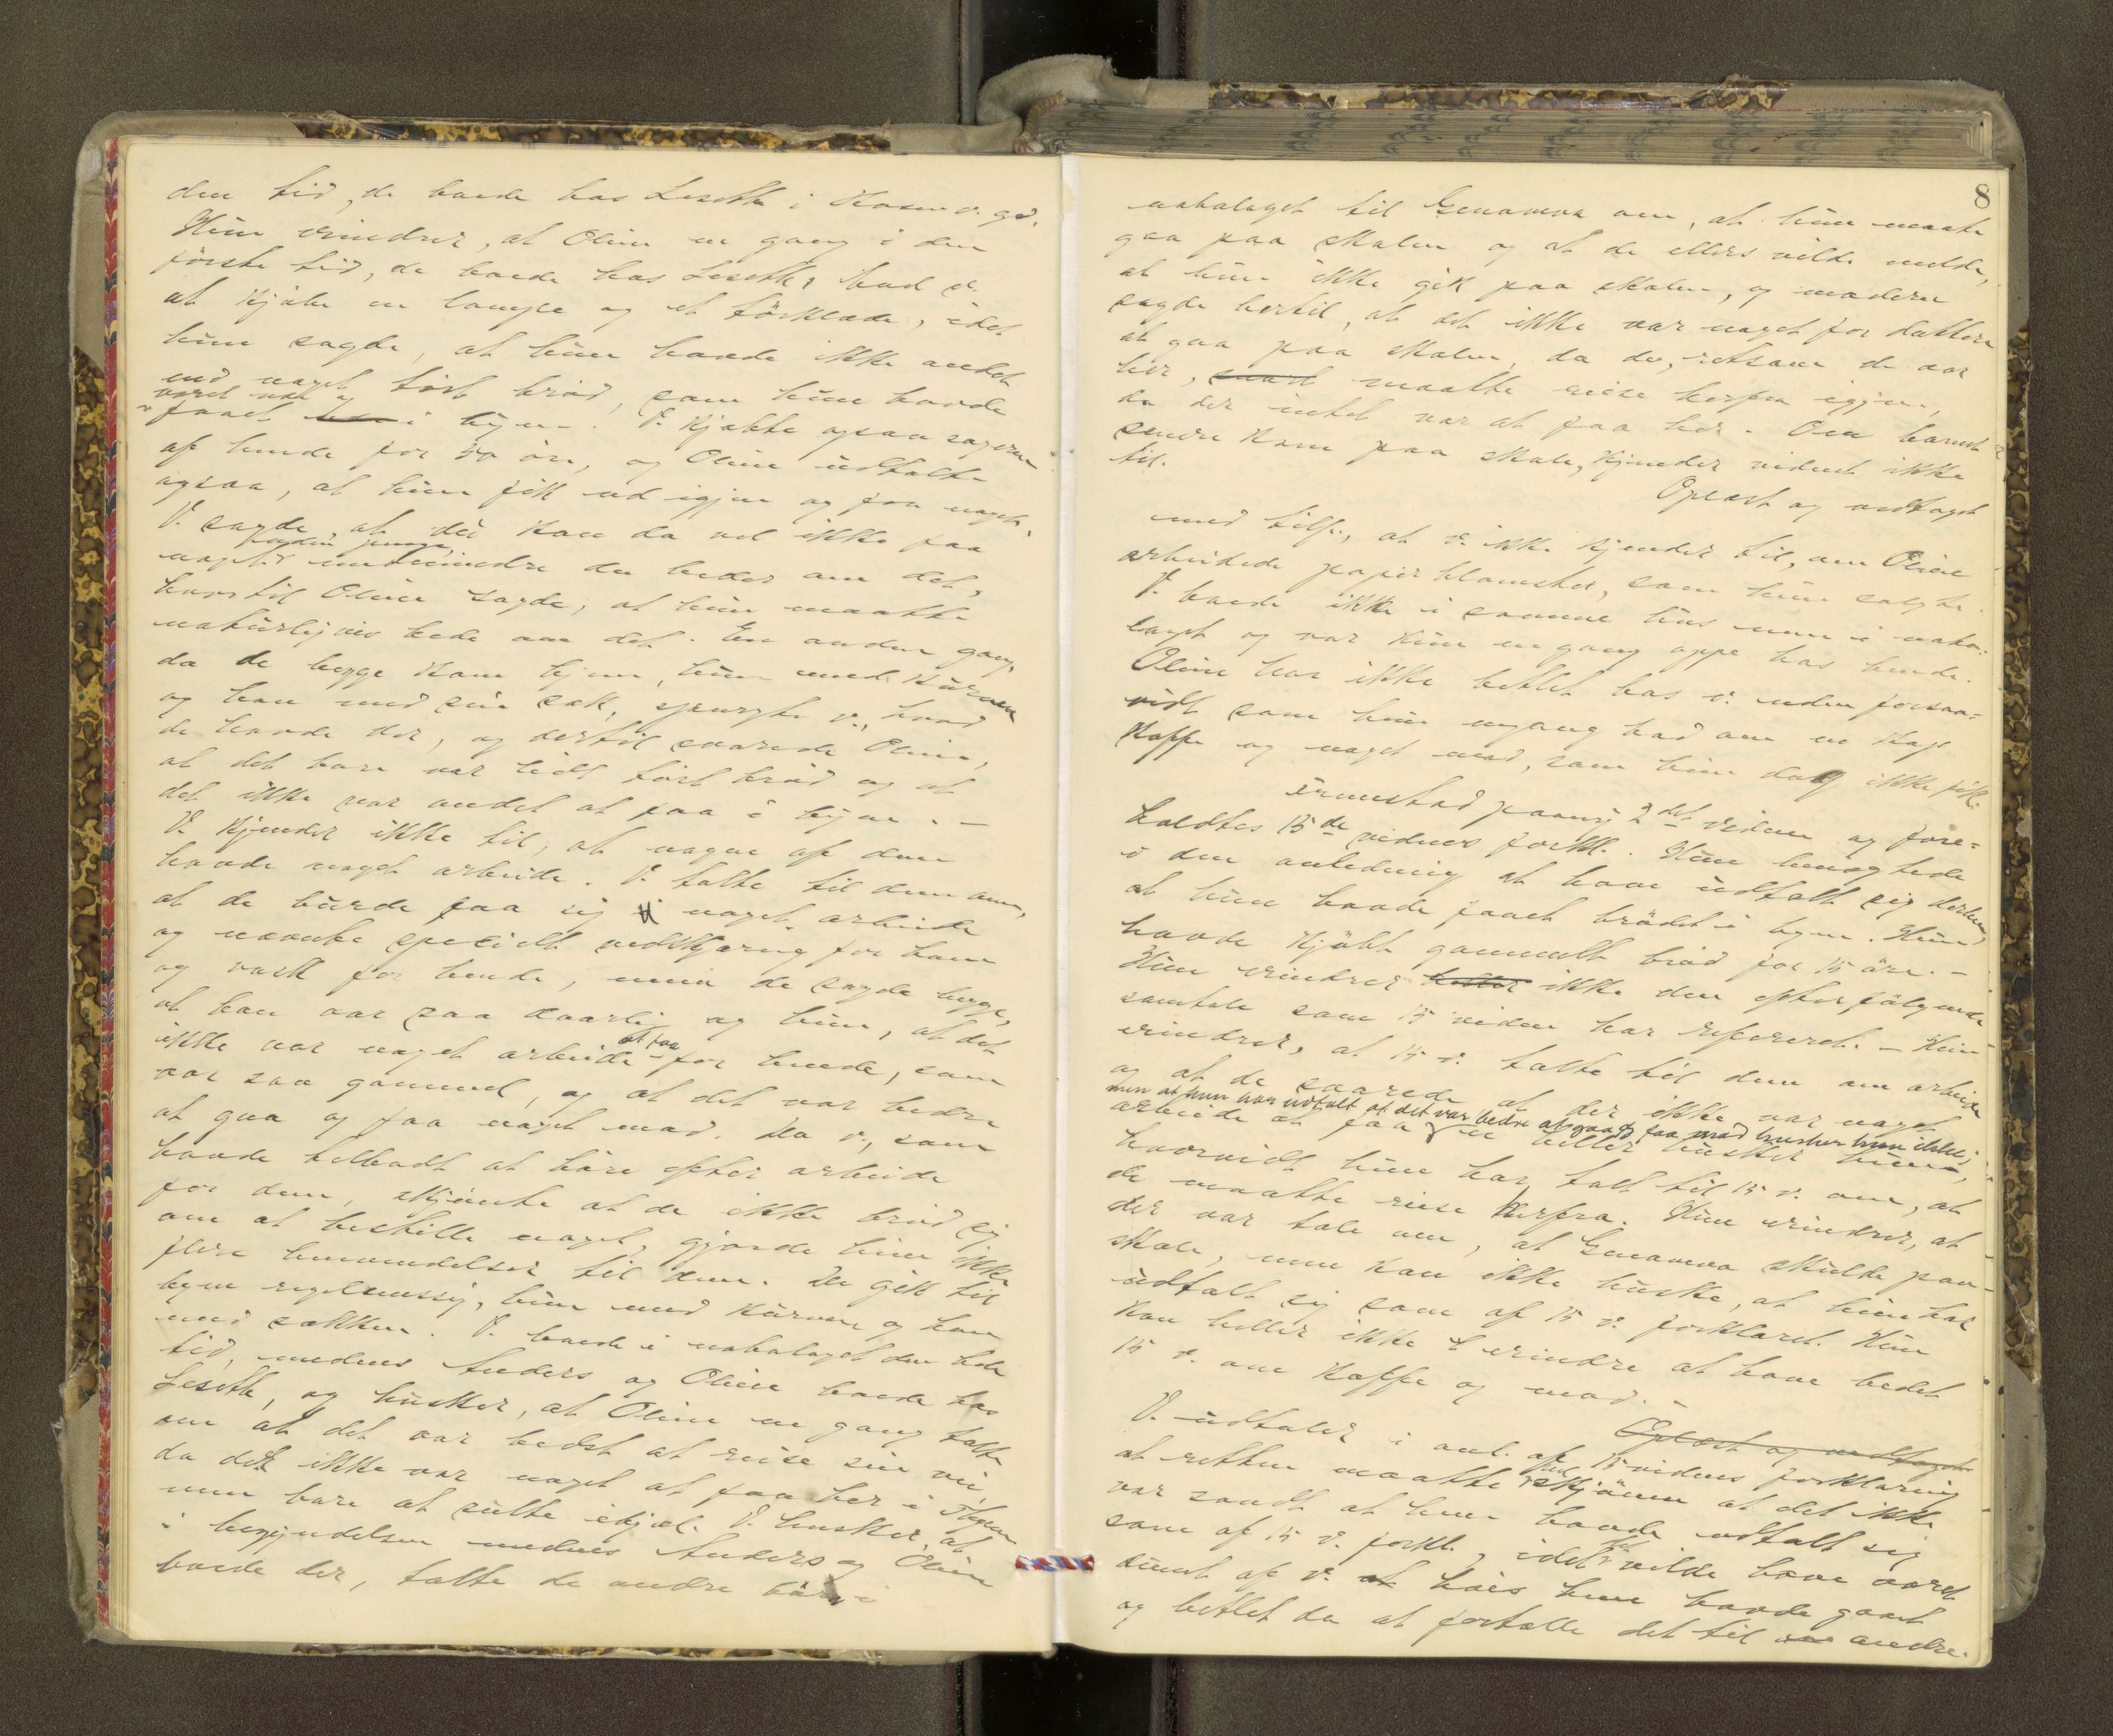 den tid, de boede hos Leseth i Hosens gd.
Hun erindrer, at Oline en gang i den
første tid, de boede hos Lesethr bad v.
at kjøbe en lampe og et törklæde, idet
hun sagde, at hun havde ikke andet
end noget tört bröd, som hun havde
været ude og
faaet i byen. V. kjøbte ogsaa sagerne
af hende for 50 öre, og Oline udtalte
ogsaa, at hun fik ud igjen og faa noget.
V. sagde, at du kan da vel ikke faa
uden penge,
noget medmindre du beder om det,
hvortil Oline sagde, at hun maatte
naturligvis bede om det. En anden gang,
da de begge kom hjem, hun med kurven
og han med sin sæk, spurgte v., hvad
de havde der, og dertil svarede Oline,
at det bare var lidt tört bröd og at
det ikke var andet at faa i byen. –
V. kjender ikke til, at nogen af dem
havde noget arbeide. V. talte til dem om,
at de burde faa sig noget arbeide
og nævnte specielt vedskjæring for ham
og vask for hende, men de sagde begge,
at han var saa daarlig og hun, at det
at faa
ikke var noget arbeide for hende, som
var saa gammel, og at det var bedre
at gaa og faa noget mad. Da v., som
havde tilbudt at höre efter arbeide
for dem, skjönte at de ikke bröd sig
om at bestille noget, gjorde hun ikke
flere henvendelser til dem. De gik til
byen regelmæssig, hun med kurven og han
med sækken. V. boede i nabolaget den hele
tid, medens Anders og Oline boede hos
Leseth, og husker, at Oline en gang talte
om at det var bedst at reise sin vei,
da det ikke var noget at faa her i Thjem
men bare at sulte ihjæl. V. husker, at
i begyndelsen medens Anders og Oline
boede der, talte de andre börn i
8
nabolaget til Genoveva om, at hun maatte
gaa paa skolen og at de ellers vilde melde,
at hun ikke gik paa skolen, og moderen
sagde hertil, at det ikke var noget for datteren
at gaa paa skolen, da de, retsom de var
her, snart maatte reise herfra igjen,
da der intet var at faa her. Om barnet
senere kom paa skole, kjender vidnet ikke
til.
Oplæst og vedtaget
med tilf., at v. ikke kjender til, om Oline
arbeidede papirblomster, som hun solgte.
V. boede ikke i samme hus men i nabo-
laget og var kun en gang oppe hos hende.
Oline har ikke betlet hos v. uden forsaa-
vidt som hun engang bad om en kop
kaffe og noget mad, som hun dog ikke fik.
Fremstod paany 2det vidne og fore-
holdtes 15de vidnes forkl. Hun benegtede
i den anledning at have udtalt sig derhen,
at hun havde faaet brödet i byen. Hun
havde kjöbt gammelt bröd for 15 öre. –
Hun erindrer heller ikke den efterfölgende
samtale som 15 vidne har refereret. – Hun
erindrer, at 15 v. talte til dem om arbeide
og at de svarede at der ikke var noget
men at hun har udtalt at det var bedre at gaa og faa mad husker hun ikke,
arbeide at faa heller husker hun,
hvorvidt hun har talt til 15 v. om, at
de maatte reise herfra. Hun erindrer, at
der var tale om, at Genoveva skulde paa
skole, men kan ikke huske, at hun har
udtalt sig som af 15 v. forklaret. Hun
kan heller ikke erindre at have bedet
15 v. om kaffe og mad. –
Oplæst og vedtaget
V. udtaler i anl. af 15 vidnes forklaring
at retten maatte skjönne at det ikke
var sandt at hun havde udtalt sig
som af 15 v. forkl., idet det vilde have været
dumt af v. hvis hun havde gaaet
og betlet da at fortælle det til andre.